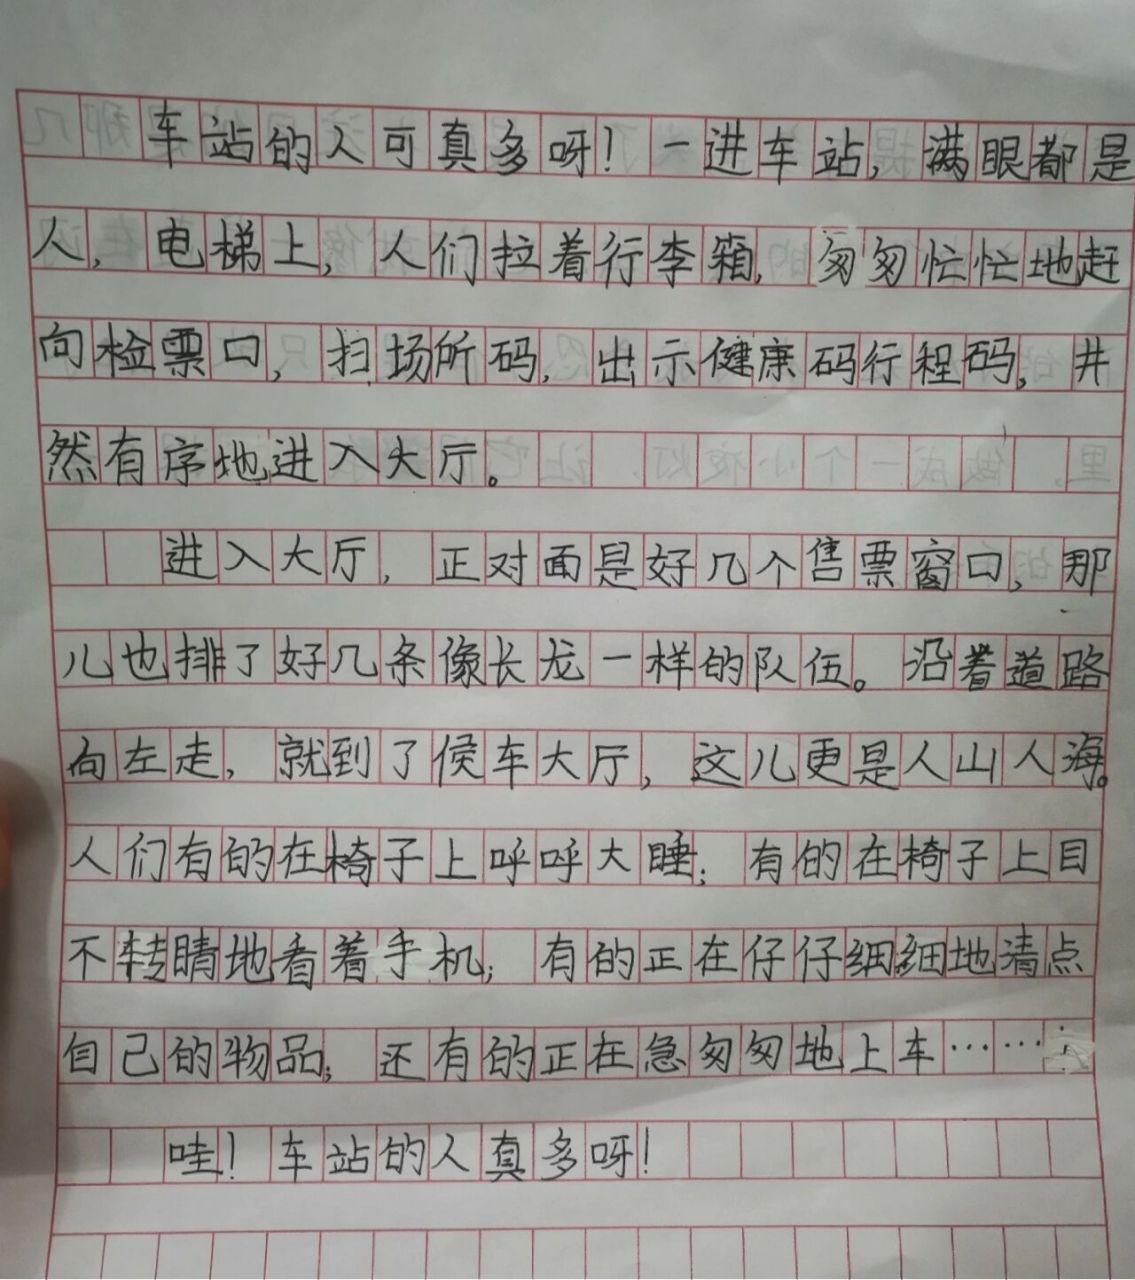 车站的人可真多呀！一进车站，满眼都是
人，电梯上，人们拉着行李箱，匆匆忙忙地赶
向检票口，扫场所码，出示健康码行程码，井
然有序地进入大厅。
进入大厅，正对面是好几个售票窗口，那
儿也排了好几条像长龙一样的队伍。沿着道路
向左走，就到了侯车大厅，这儿更是人山人海。
人们有的在椅子上呼呼大睡；有的在椅子上目
不转睛地看着手机；有的正在仔仔细细地清点
自己的物品；还有的正在急匆匆地上车……
哇！车站的人真多呀！